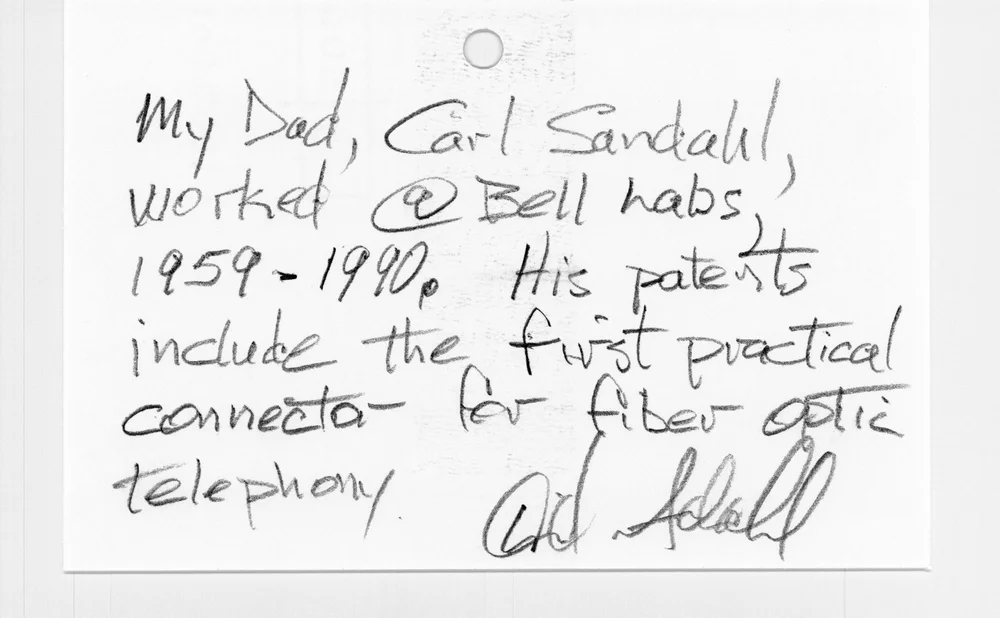 My Dad, Carl Sandahl,
worked @ Bell Labs,
1959-1990. His patents
include the first practical
connector for fiber optic
telephony.